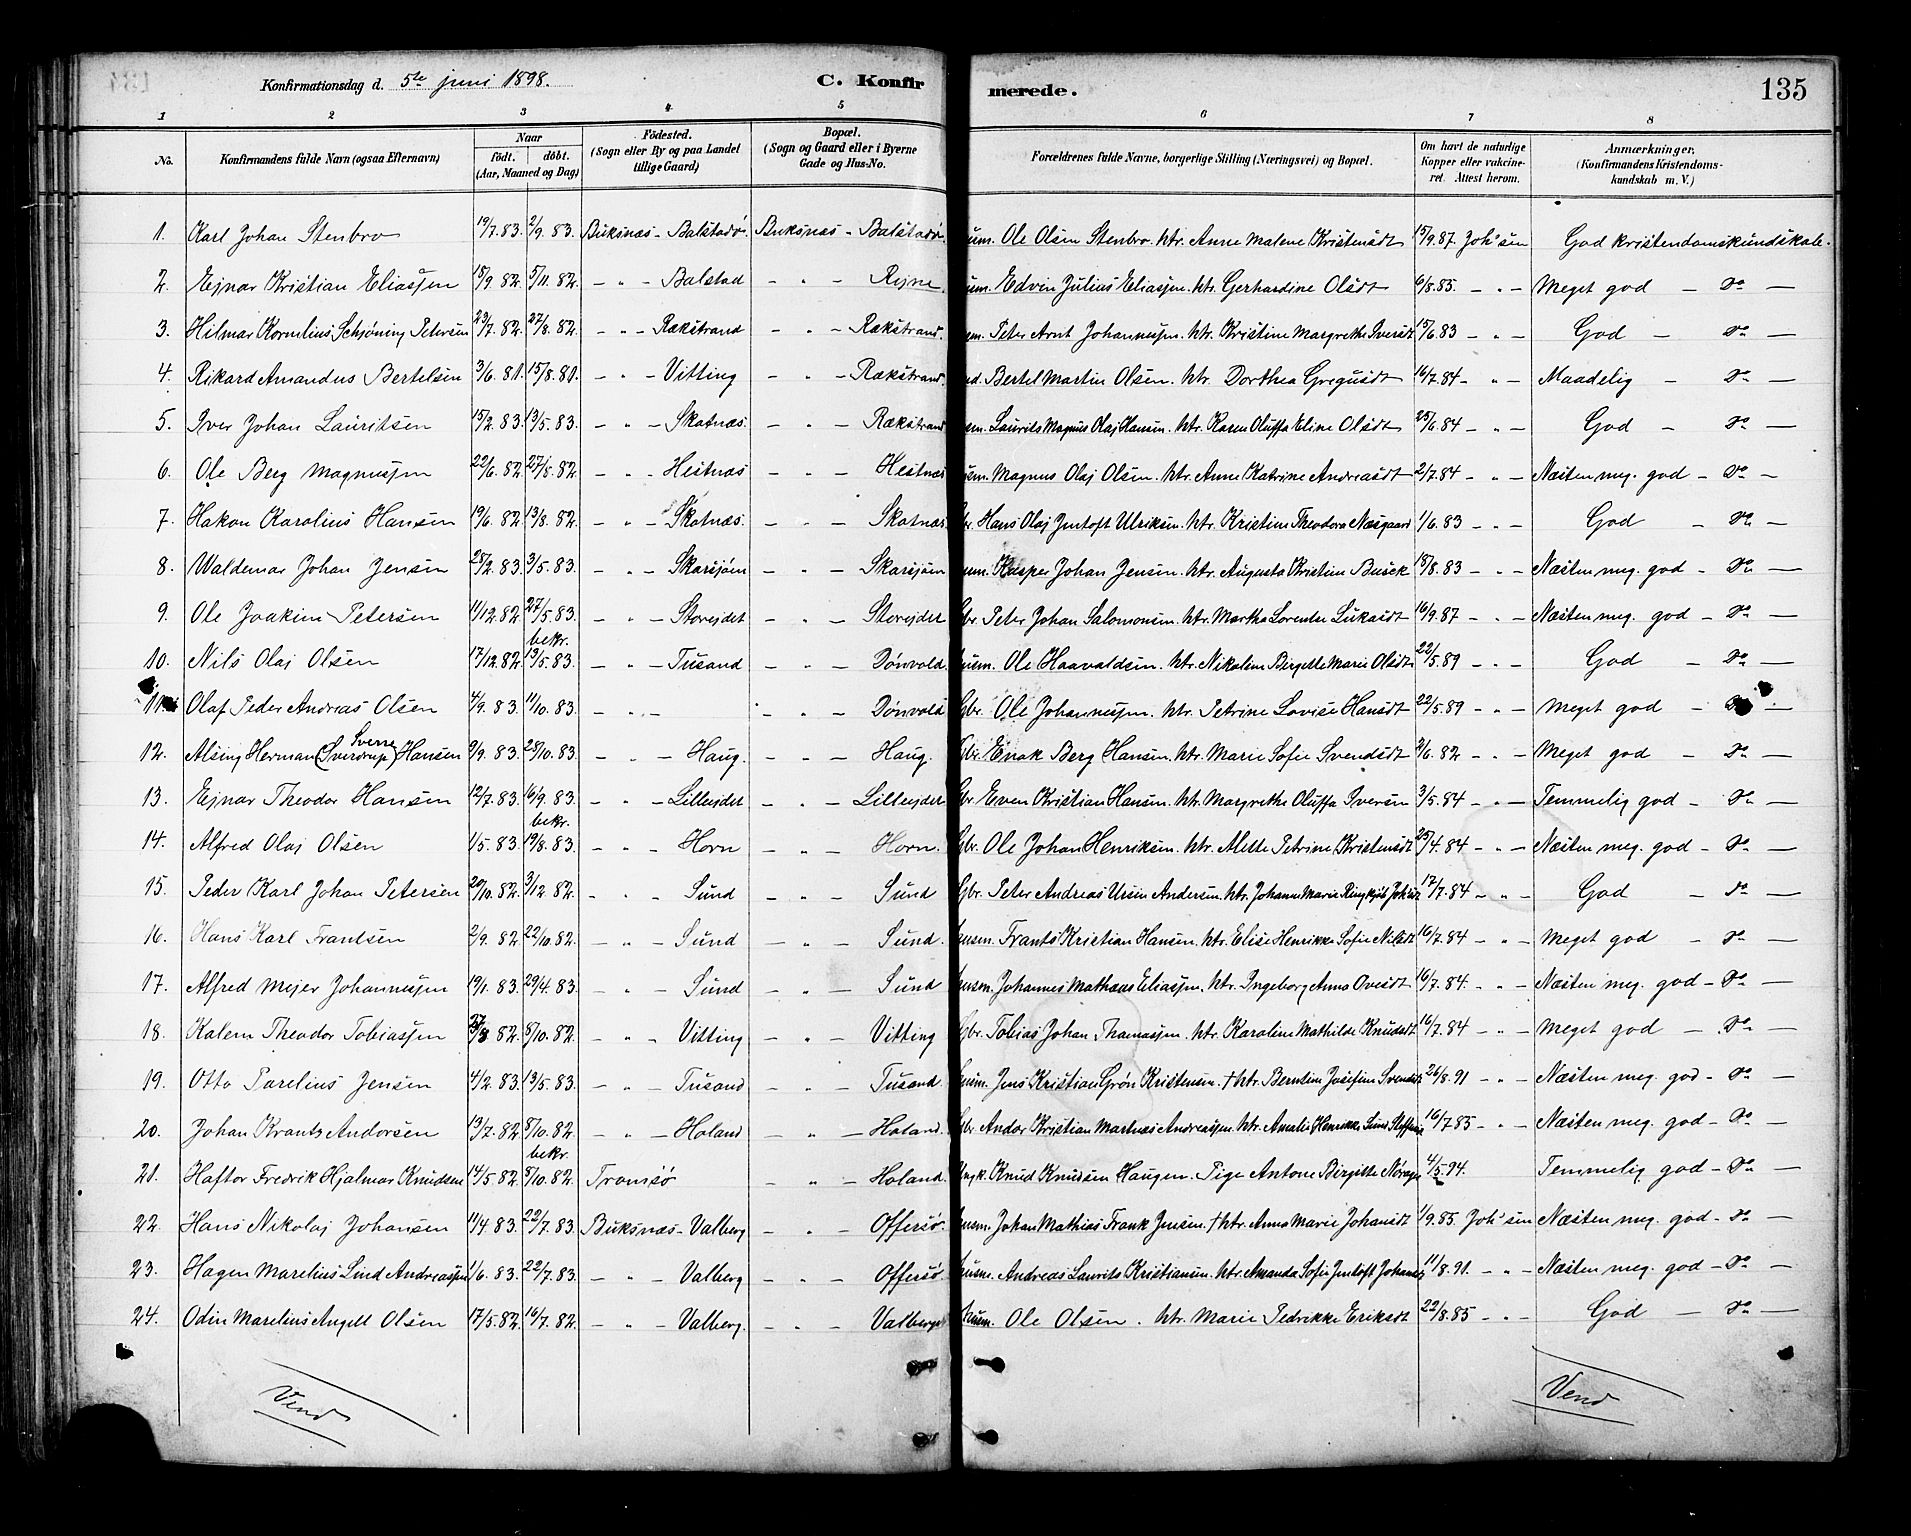 Konfirmationsdag d. 5te juni 1898. C. Konfirmerede. 135
1 2 3 4 5 6 7 8
No. Konfirmandens fulde Navn (ogsaa Efternavn) Naar födt. döbt. (Aar, Maaned og Dag) Födested. (Sogn eller By og paa Landet tillige Gaard) Bopæl. (Sogn og Gaard eller i Byerne Gade og Hus-No. Forældrenes fulde Navne, borgerlige Stilling (Næringsvei) og Bopæl. Om havt de naturlige Kopper eller vakcineret. Attest herom. Anmærkninger, (Konfirmandens Kristendomskundskab m. V.)
1. Karl Johan Stenbro 19/7.83. 2/9.83. Buksnæs - Balstadø. Buksnæs - Balstadø. Ole Olsen Stenbro. htr. Anne Malene Kristensdt 15/9.87 Joh'sen God kristendomskundskab.
2. Ejnar Kristian Eliassen 15/9.82. 5/11.82. - " - Balstad - " - Rejne. Edvin Julius Eliassen. htr. Gerhardine Olsdt 6/8.85. - " - Meget god - do -
3. Hilmar Kornelius Schjøning Petersen 23/7.82. 27/8.82. - " - Rækstrand - " - Rækstrand. Peter Arnt Johannessen. htr. Kristine Margrethe Iversdt 15/6.83 - " - God - do -
4. Rikard Amandus Bertelsen 3/6.81. 15/8.81. - " - Vitting - " - Rækstrand. Bertel Martin Olsen. htr. Dorthea Gregusdt 16/7.84 - " - Maadelig - do -
5. Iver Johan Lauritsen 15/2.83. 13/5.83. - " - Skotnæs. - " - Rækstrand Laurits Magnus Olaj Hansen. htr. Karen Oluffa Eline Olsdt 25/6.84 - " - God - do -
6. Ole Berg Magnussen 22/6.82. 27/8.82. - " - Hestnæs - " - Hestnæs Magnus Olaj Olsen. htr. Anne Katrine Andreasdt 2/7.84 - " - Næsten meg. god - do -
7. Hakon Karolius Hansen 19/6.82. 13/8.82. - " - Skotnæs. - " - Skotnæs Hans Olaj Jentoft Ulriksen. htr. Kristine Theodora Næsgaard 1/6.83 - " - God - do -
8. Waldemar Johan Jensen 28/2.83. 3/5.83. - " - Skarsjøen - " - Skarsjøen Kasper Johan Jensen. htr. Augusta Kristine Busek 18/8.83 - " - Næsten meg. god - do -
9. Ole Joakim Petersen 11/12.82. 27/5.83. bekr. - " - Storejdet - " - Storejdet Gbr. Peter Johan Salomonsen. htr. Martha Lorentse Lukasdt 16/9.87 - " - Næsten meg. god - do -
10. Nils Olaj Olsen 17/12.82. 13/5.83. - " - Tusand - " - Dønvold Ole Haavaldsen. htr. Nikoline Birgitte Marie Olsdt 22/5.89 - " - God - do -
11. Olaf Peder Andreas Olsen 4/9.83. 11/10.83. - " - - " - Dønvold Gbr. Ole Johannessen. htr. Petrine Lovise Hansdt 22/5.89 - " - Meget god - do -
12. Alsing Herman (Sverdrup) Sverre Hansen 9/9.83. 28/10.83. - " - Haug. - " - Haug. Gbr. Enok Berg Hansen. htr. Marie Sofie Svendsdt 2/6.82 - " - Meget god - do -
13. Ejnar Theodor Hansen 12/7.83. 16/9.83. bekr. - " - Lillejdet - " - Lillejdet Gbr. Even Kristian Hansen. htr. Margrethe Oluffa Iversen 3/5.84 - " - Temmelig god - do -
14. Alfred Olaj Olsen 1/5.83. 19/8.83. - " - Horn - " - Horn. Gbr. Ole Johan Henriksen. htr. Alette Petrine Kristensdt 25/4.84 - " - Næsten meg. god - do -
15. Peder Karl Johan Petersen 20/10.82. 3/12 82. - " - Sund - " - Sund Gbr. Peter Andreas Ursin Andersen. htr. Johanne Marie 17/7.84 - " - God - do -
16. Hans Karl Frantsen 2/9.82. 22/10.82. - " - Sund - " - Sund. Frants Kristian Hansen. htr. Elise Henrikke Sofie Nilsdt 16/7.84 - " - Meget god - do -
17. Alfred Mejer Johannessen 19/1.83. 29/4.83. - " - Sund - " - Sund Johannes Mathæus Eliassen. htr. Ingeborg Anna Ovesdt 16/7.84. - " - Næsten meg. god - do -
18. Kalem Theodor Tobiassen 82. 8/10.82. - " - Vitting - " - Vitting Gbr. Tobias Johan Thomassen. htr. Karoline Mathilde Knudsdt 16/7.84 - " - Meget god - do -
19. Otto Parelius Jensen 4/2.83. 13/5.83. - " - Tusand - " - Tusand. Jens Kristian Grøn Kristensen. † htr. Berntine Josefine Svendsdt 26/8.91 - " - Næsten meg. god - do -
20. Johan Krantz Andorsen 13/7.82. 8/10.82. bekr. - " - Holand - " - Holand. Gbr. Andor Kristian Andreassen. htr. Amalie Henrikke 16/7.85 - " - Næsten meg. god - do -
21. Haftor Fredrik Hjalmar Knudsen 14/5.82. 8/10.82. Tromsø - " - Holand. Ungk. Knud Knudsen Haugen. Pige Antone Birgitte 4/5.94. Temmelig god - do -
22. Hans Nikolaj Johansen 11/4.83. 22/7.83. Buksnæs - Valberg - " - Offersø. Johan Mathias Frank Jensen. † htr. Anna Marie Johansdt 1/9.85. Joh'sen Næsten meg. god - do -
23. Hagen Marelius Lind Andreassen 1/6.83. 22/7.83. - " - Valberg - " - Offersø Andreas Laurits Kristiansen. htr. Amanda Sofie Jentoft 11/8.91. - " - Næsten meg. god - do -
24. Odin Marelius Angell Olsen 17/5.82. 16/7.82. - " - Valberg. - " - Valberg Ole Olsen. htr. Marie Pedrikke Eriksdt 22/8.85 - " - God - do -
Vend Vend